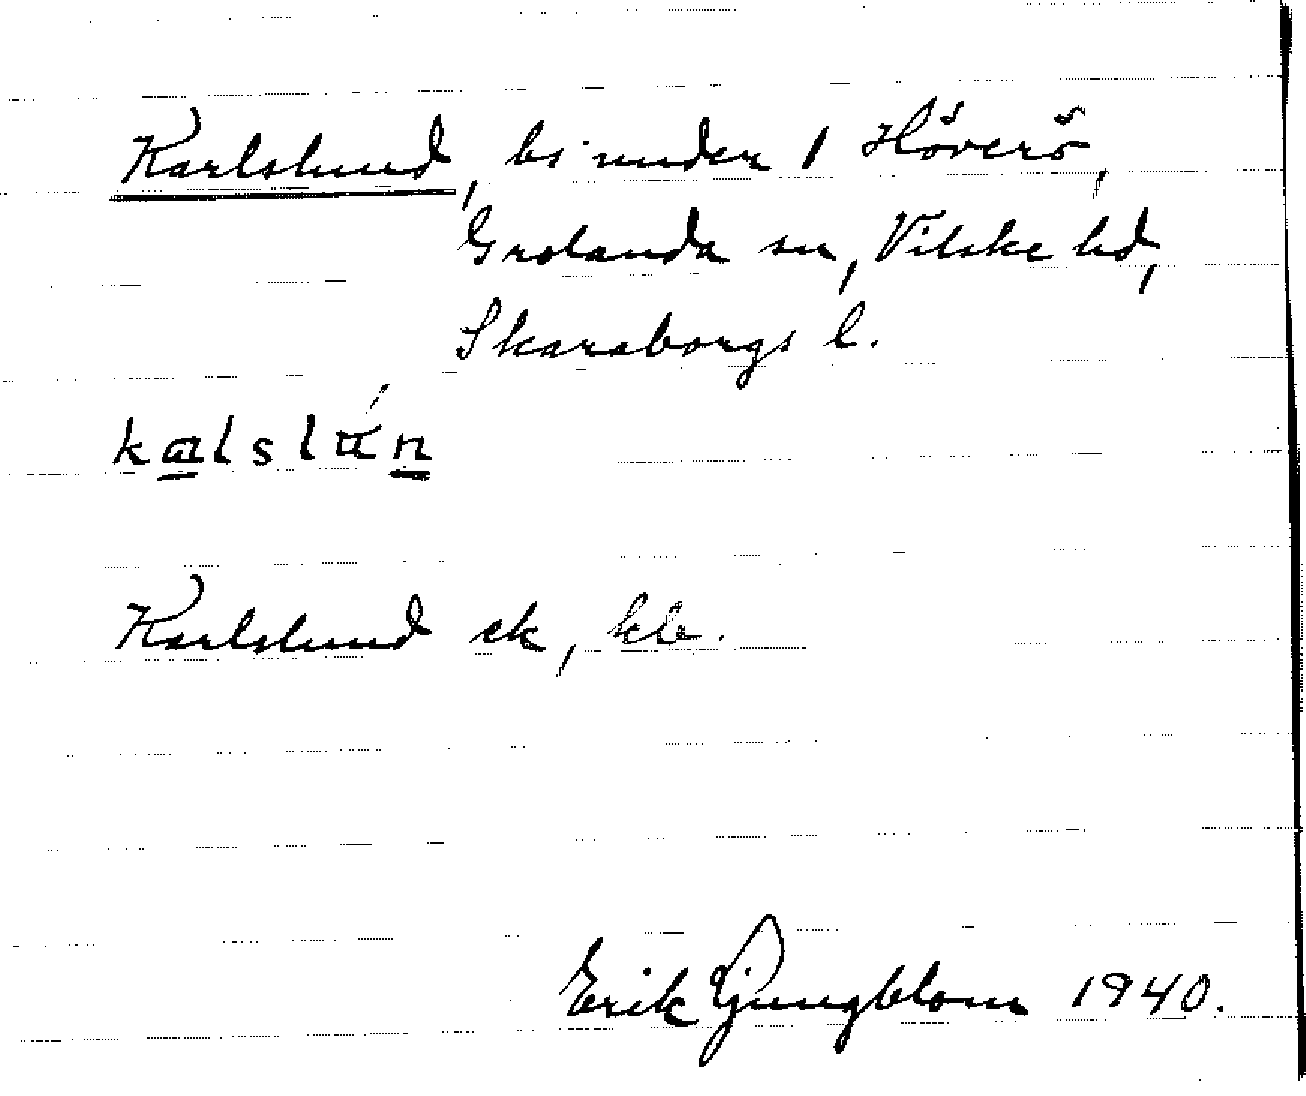 Karlslund, bs under 1 Höverö,
Grolanda sn, Vilske hd,
Skaraborgs l.
kalslún
Karlslund ek, kla.
Erik Ljungblom 1940.